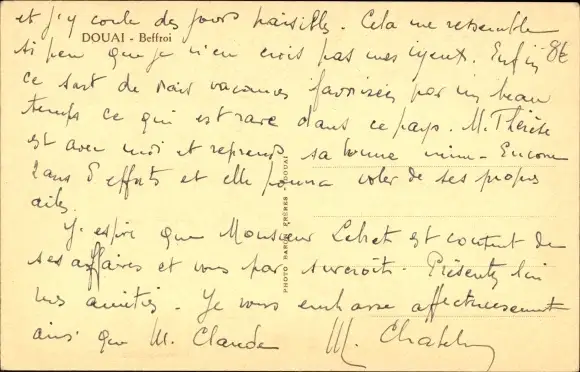 et j'y coule des jours paisibles. Cela me ressemble
DOUAI - Beffroi
si peu que je n'en crois pas mes yeux. Enfin
8€
ce sont de vraies vacances favorisées par un beau
temps ce qui est rare dans ce pays. M. Thérèse
est avec moi et reprend sa bonne mine - Encore
2 ans d'efforts et elle pourra voler de ses propres
ailes.
J'espère que Monsieur est content de
ses affaires et vous par surcroît. Présentez lui
mes amitiés. Je vous embrasse affectueusement
ainsi que M. Claude
PHOTO FRÈRES DOUAI